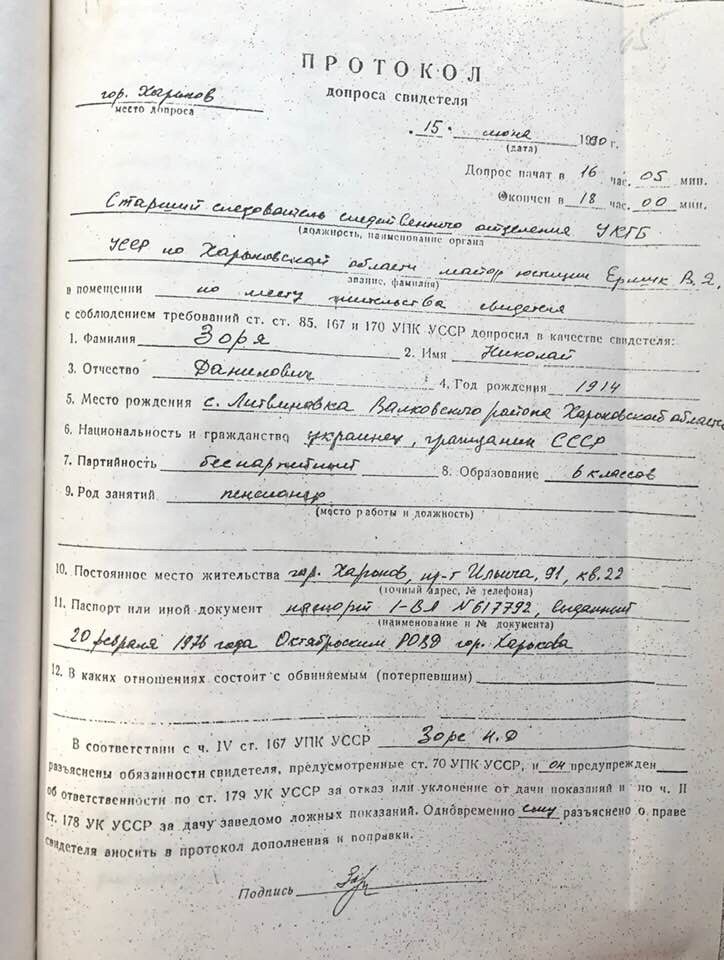 ПРОТОКОЛ
допроса свидетеля
гор. Харьков
место допроса
"15" июня 1990 г.
(дата)
Допрос начат в 16 час. 05 мин.
Окончен в 18 час. 00 мин.
Старший следователь следственного отделения УКГБ
(должность, наименование органа
УССР по Харьковской области майор юстиции В.Я.
звание, фамилия)
в помещении по месту жительства свидетеля
с соблюдением требований ст. ст. 85, 167 и 170 УПК УССР допросил в качестве свидетеля:
1. Фамилия Зоря 2. Имя Николай
3. Отчество Данилович 4. Год рождения 1914
5. Место рождения с. Литвиновка Валковского района Харьковской области
6. Национальность и гражданство украинец, гражданин СССР
7. Партийность беспартийный 8. Образование 6 классов
9. Род занятий пенсионер
(место работы и должность)
10. Постоянное место жительства гор. Харьков, пр-т Ильича, 91, кв. 22
(точный адрес, № телефона)
11. Паспорт или иной документ паспорт I-ВЛ N 617792, выданный
(наименование и № документа)
20 февраля 1976 года Октябрьским РОВД гор. Харькова
12. В каких отношениях состоит с обвиняемым (потерпевшим)
В соответствии с ч. IV ст. 167 УПК УССР Зоре Н.Д
разъяснены обязанности свидетеля, предусмотренные ст. 70 УПК УССР, и он предупрежден
об ответственности по ст. 179 УК УССР за отказ или уклонение от дачи показаний и по ч. II
ст. 178 УК УССР за дачу заведомо ложных показаний. Одновременно ему разъяснено о праве
свидетеля вносить в протокол дополнения и поправки.
Подпись